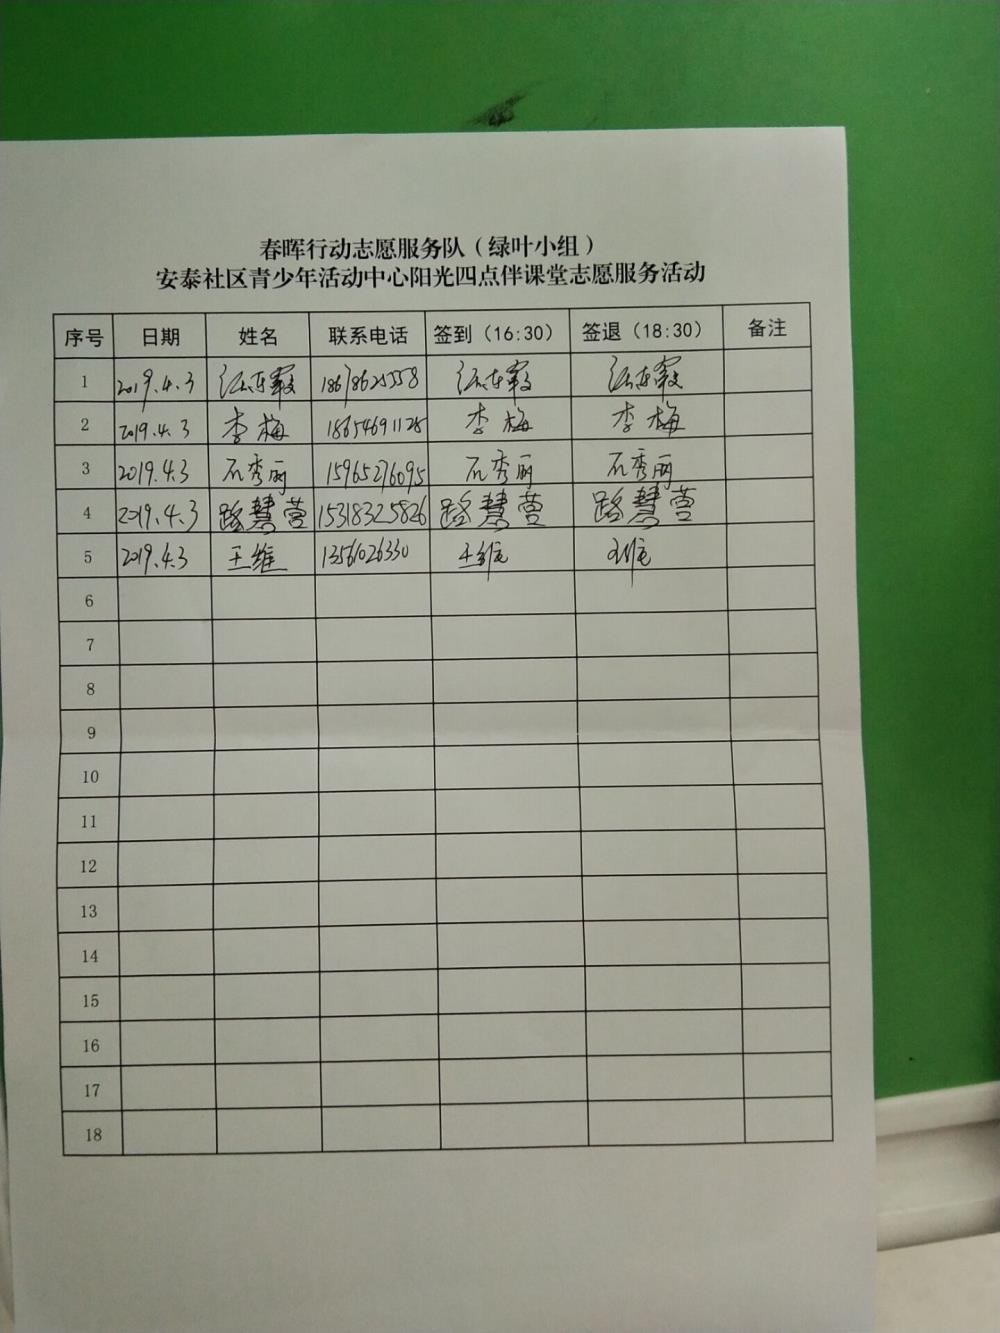 春晖行动志愿服务队（绿叶小组）
安泰社区青少年活动中心阳光四点伴课堂志愿服务活动
序号 日期 姓名 联系电话 签到（16:30） 签退（18:30） 备注
1 2019.4.3 18678625558
2 2019.4.3 李梅 18654691128 李梅 李梅
3 2019.4.3 石秀丽 15965276095 石秀丽 石秀丽
4 2019.4.3 路慧莹 15318325826 路慧莹 路慧莹
5 2019.4.3 王维 13561026330 王维 王维
6
7
8
9
10
11
12
13
14
15
16
17
18